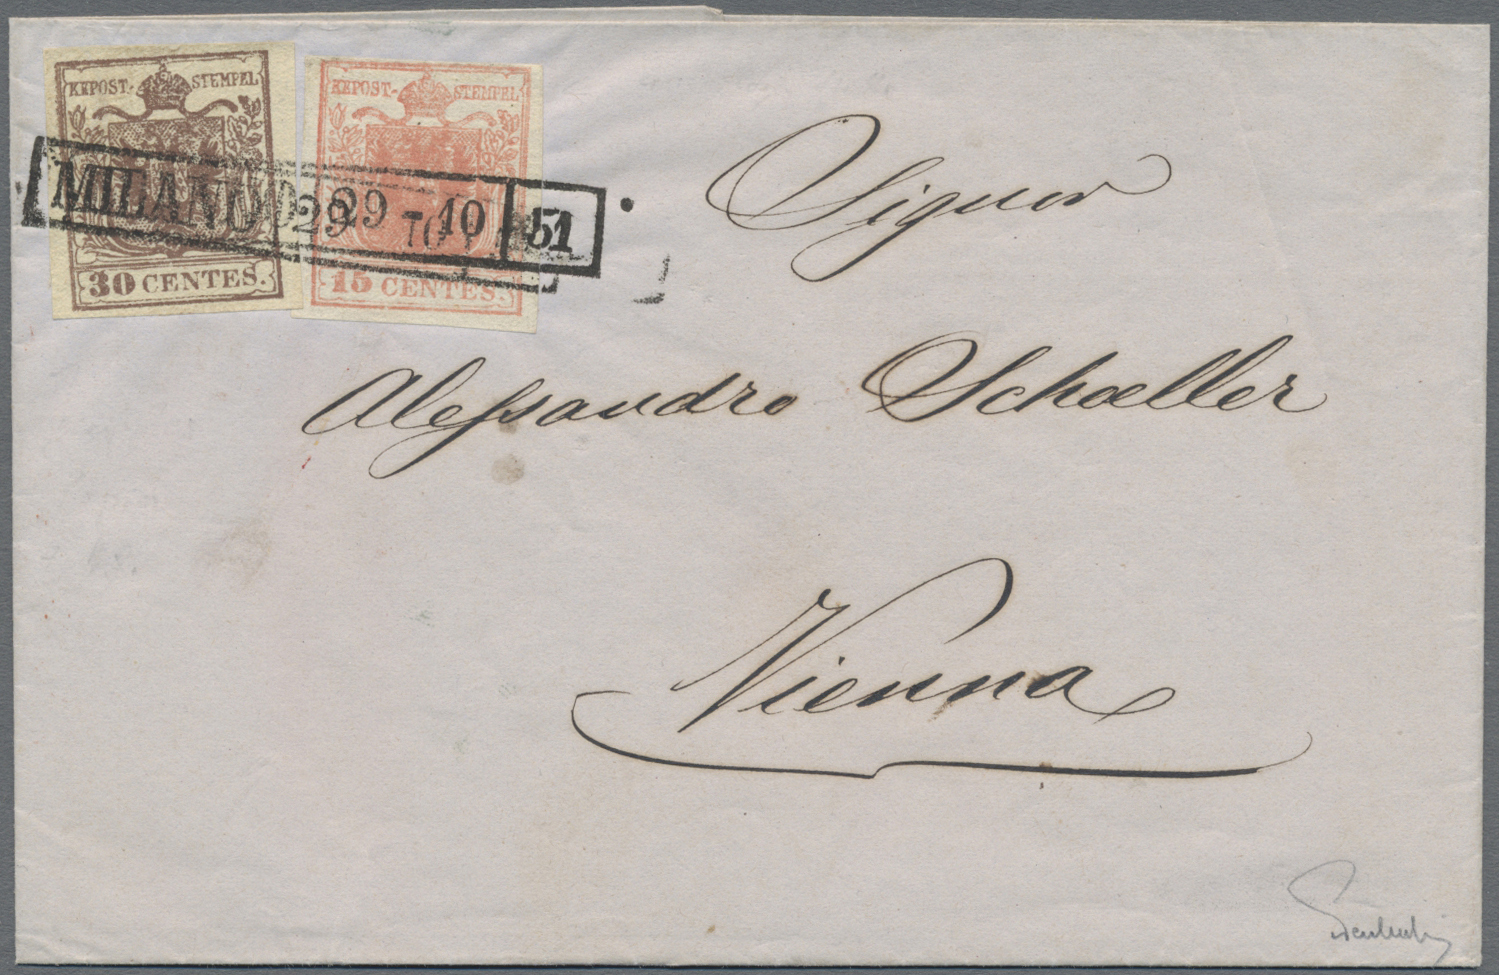 KKPOST-STEMPEL
30 CENTES.
KKPOST-STEMPEL
15 CENTES.
MILANO 29-10 51
29 10
Signor
Alessandro Schœller
Vienna